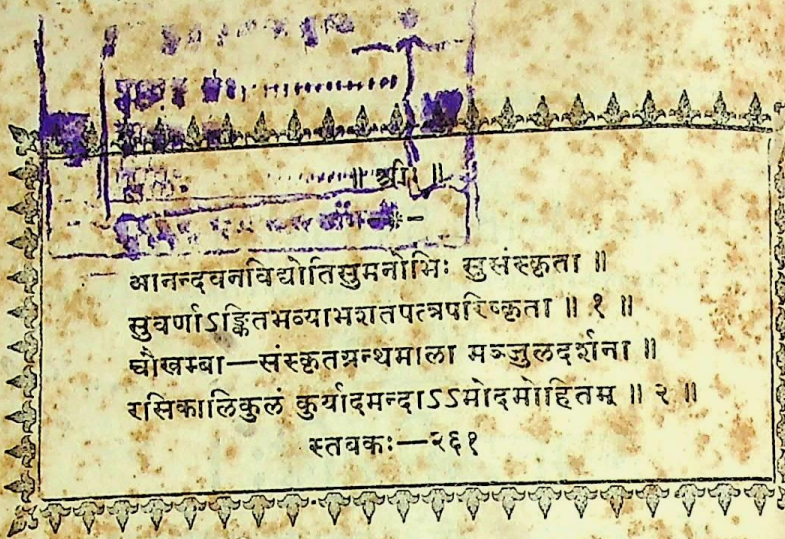 ॥ श्रीः ॥
आनन्दवनविद्योतिसुमनोभिः सुसंस्कृता ॥
सुवर्णाऽङ्कितभव्याभशतपत्त्रपरिष्कृता ॥ १ ॥
चौखम्बा—संस्कृतग्रन्थमाला मञ्जुलदर्शना ॥
रसिकालिकुलं कुर्यादमन्दाऽऽमोदमोहितम् ॥ २ ॥
स्तबकः—२६१